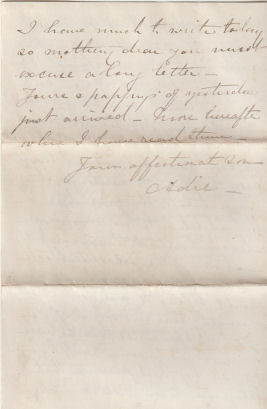 I have much to write today
so mother, dear you must
excuse a long letter —
Yours & pappy's of yesterday
just arrived — More hereafter
when I have read them —
Your affectionate son
Adie —